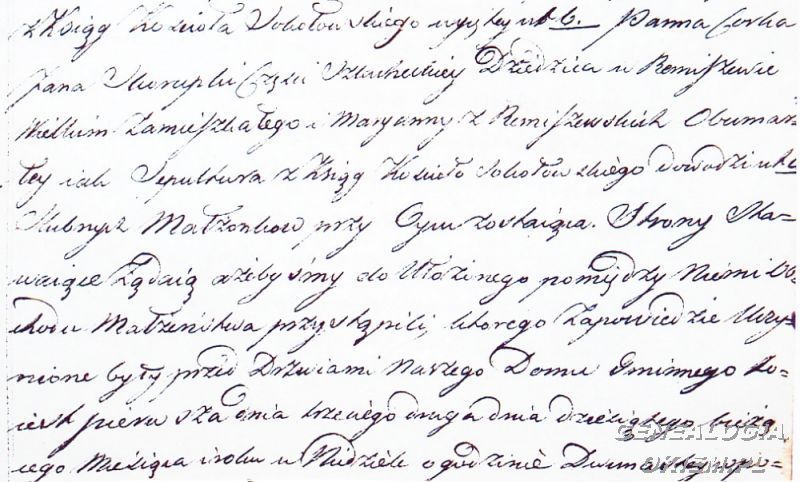 z Ksiąg Kościoła Sokołowskiego wyjętey Panna Corka
Jana Skorupki Części Szlacheckiey Dziedzica w Remiszewie
Wielkim Zamieszkałego i Maryanny z Remiszewskich Obumar-
łey iak Sepultura z Ksiąg Kościoła Sokołowskiego dowodzi
Slubnych Małżonkow przy Oycu zostaiąca. Strony Sta-
waiące Żądaią ażebysmy do Ułożonego pomiędzy Niemi Ob-
chodu Małżeństwa przystąpili, ktorego Zapowiedzie Uczy-
nione były przed Drzwiami Naszego Domu Gminnego to-
iest pierwsza dnia trzeciego druga dnia dziesiątego bieżą-
cego Miesiąca i roku w Niedziele o godzinie Dwunastey w po-
GENEALOGIA
OKIEM.PL